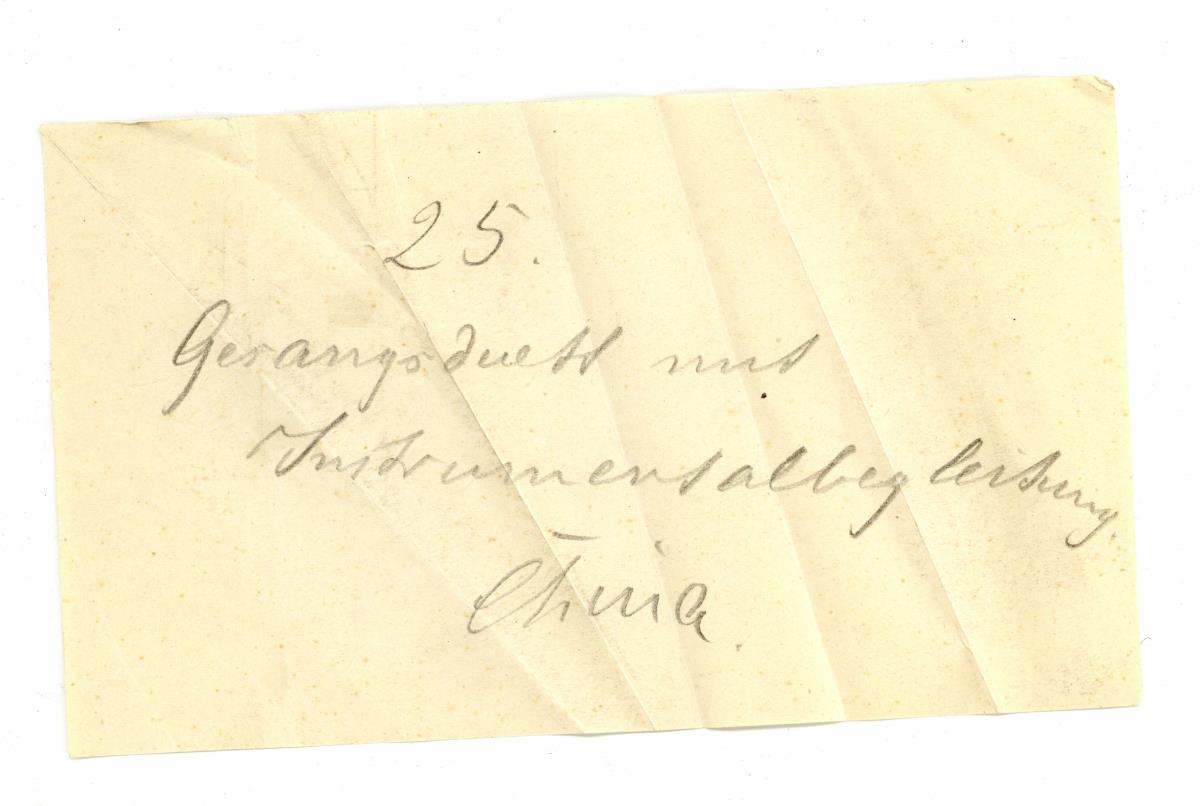 25.
Gesangsduett mit
Instrumentalbegleitung.
China.